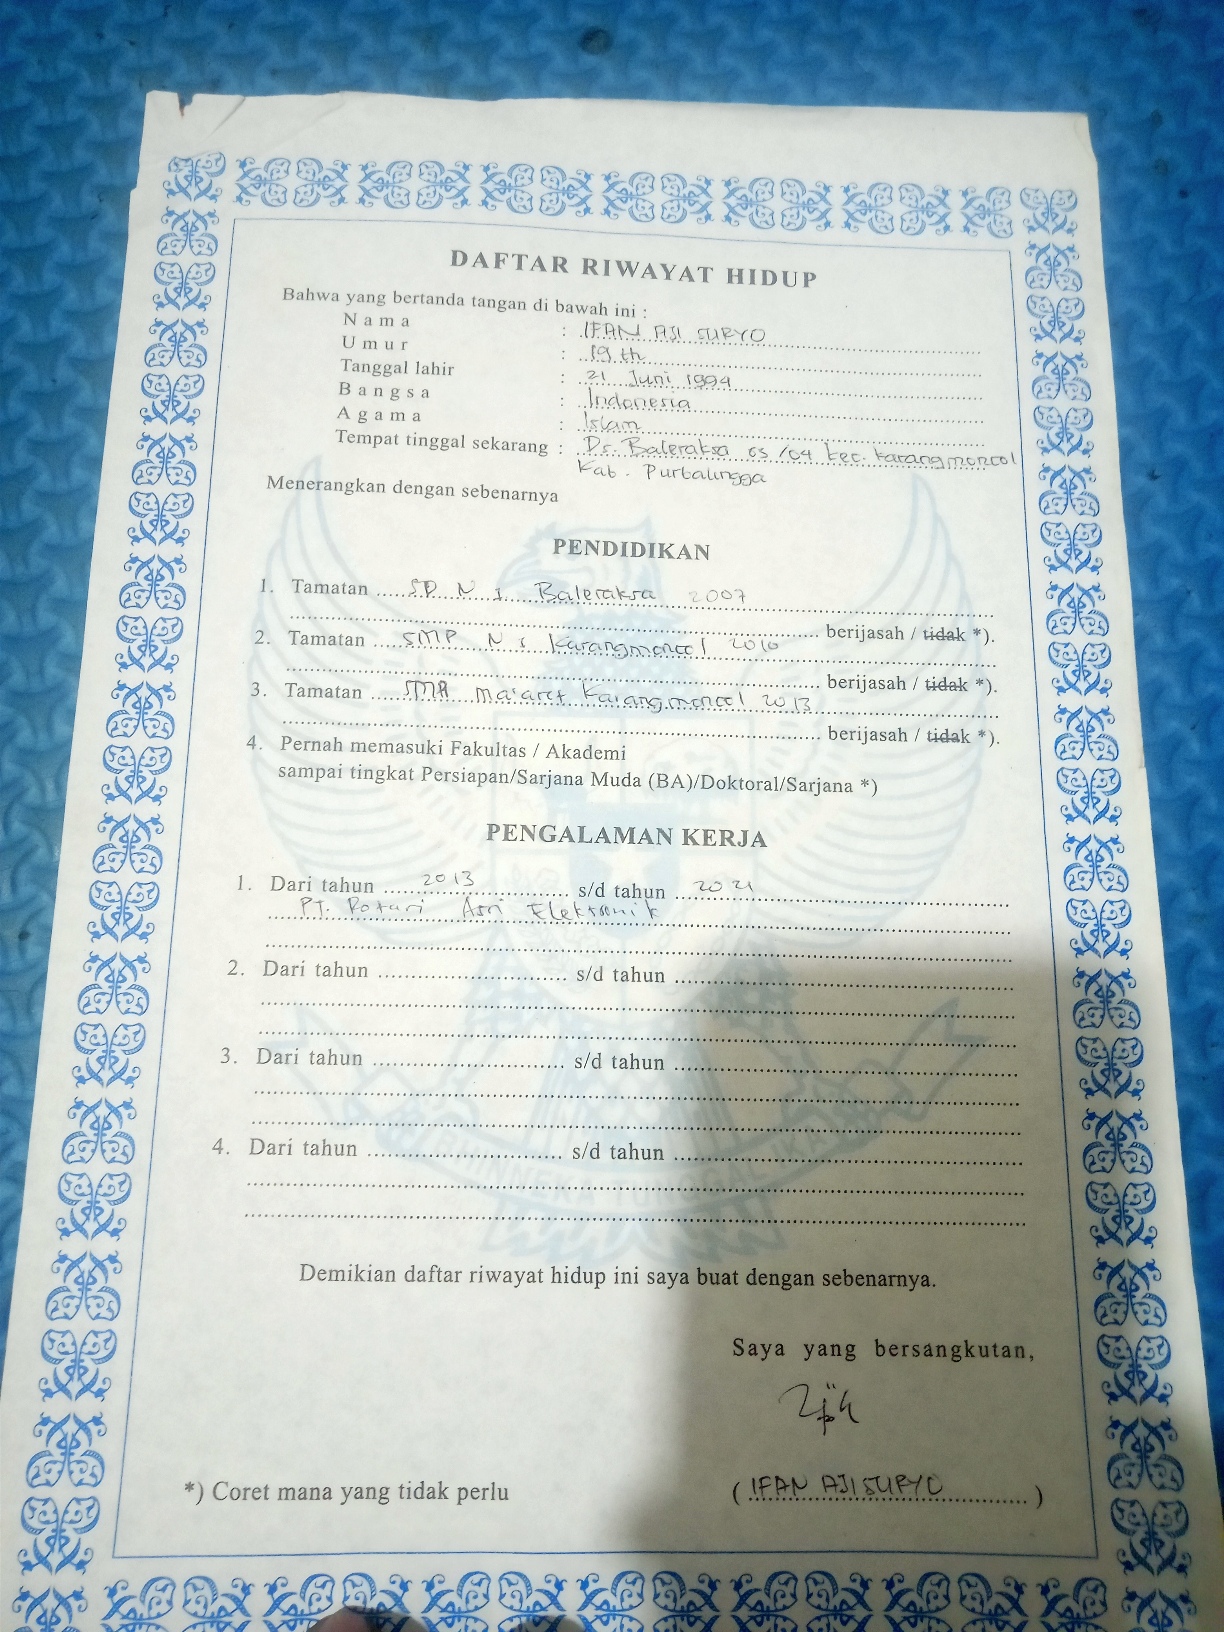 DAFTAR RIWAYAT HIDUP
Bahwa yang bertanda tangan di bawah ini :
Nama : IFAN AJI SURYO
Umur : 19 th
Tanggal lahir : 21 Juni 1994
Bangsa : Indonesia
Agama : Islam
Tempat tinggal sekarang : Ds. Baleraksa 03/04 kec. karangmoncol
Kab. Purbalingga
Menerangkan dengan sebenarnya
PENDIDIKAN
1. Tamatan SD N 1 Baleraksa 2007
berijasah / tidak *).
2. Tamatan SMP N 1 Karangmoncol 2010
berijasah / tidak *).
3. Tamatan SMA Ma'aref Karangmoncol 2013
berijasah / tidak *).
4. Pernah memasuki Fakultas / Akademi
sampai tingkat Persiapan/Sarjana Muda (BA)/Doktoral/Sarjana *)
PENGALAMAN KERJA
1. Dari tahun 2013 s/d tahun 2021
PT. Asri Elektronik
2. Dari tahun s/d tahun
3. Dari tahun s/d tahun
4. Dari tahun s/d tahun
Demikian daftar riwayat hidup ini saya buat dengan sebenarnya.
Saya yang bersangkutan,
*) Coret mana yang tidak perlu
( IFAN AJI SURYO )